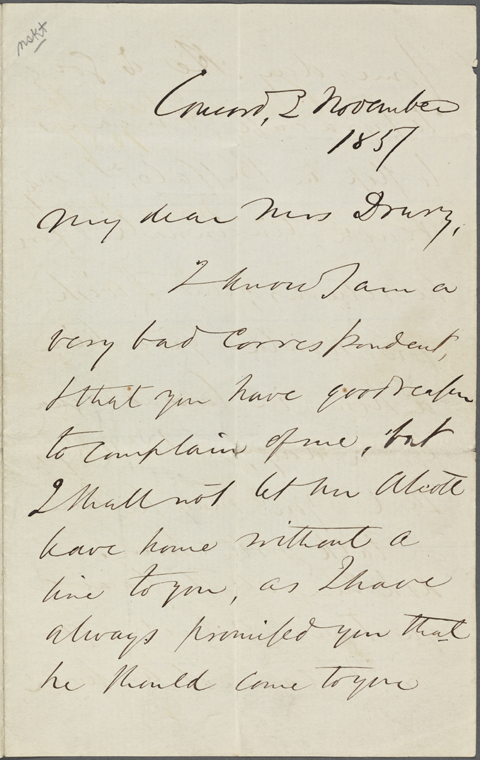 Concord, 2 November
1857
My dear Mrs Drury,
I know I am a
very bad correspondent,
& that you have good reason
to complain of me, but
I shall not let Mr Alcott
leave home without a
line to you, as I have
always promised you that
he should come to you